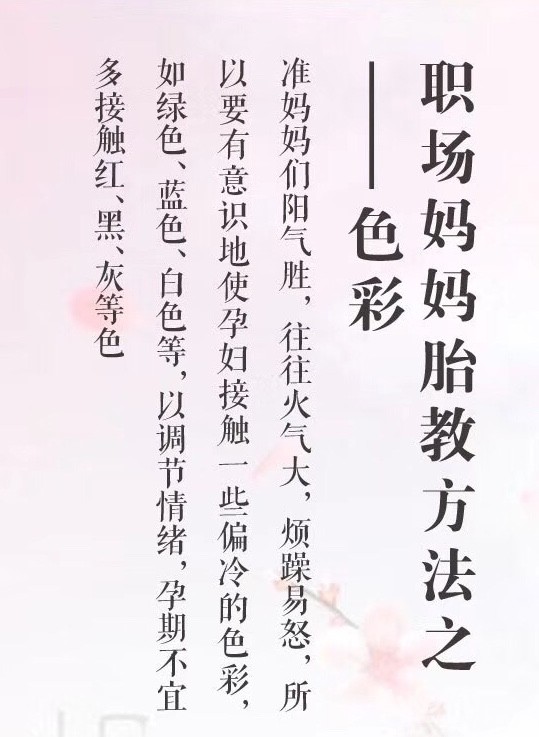 职场妈妈胎教方法之
——色彩
准妈妈们阳气胜，往往火气大，烦躁易怒，所
以要有意识地使孕妇接触一些偏冷的色彩，
如绿色、蓝色、白色等，以调节情绪，孕期不宜
多接触红、黑、灰等色